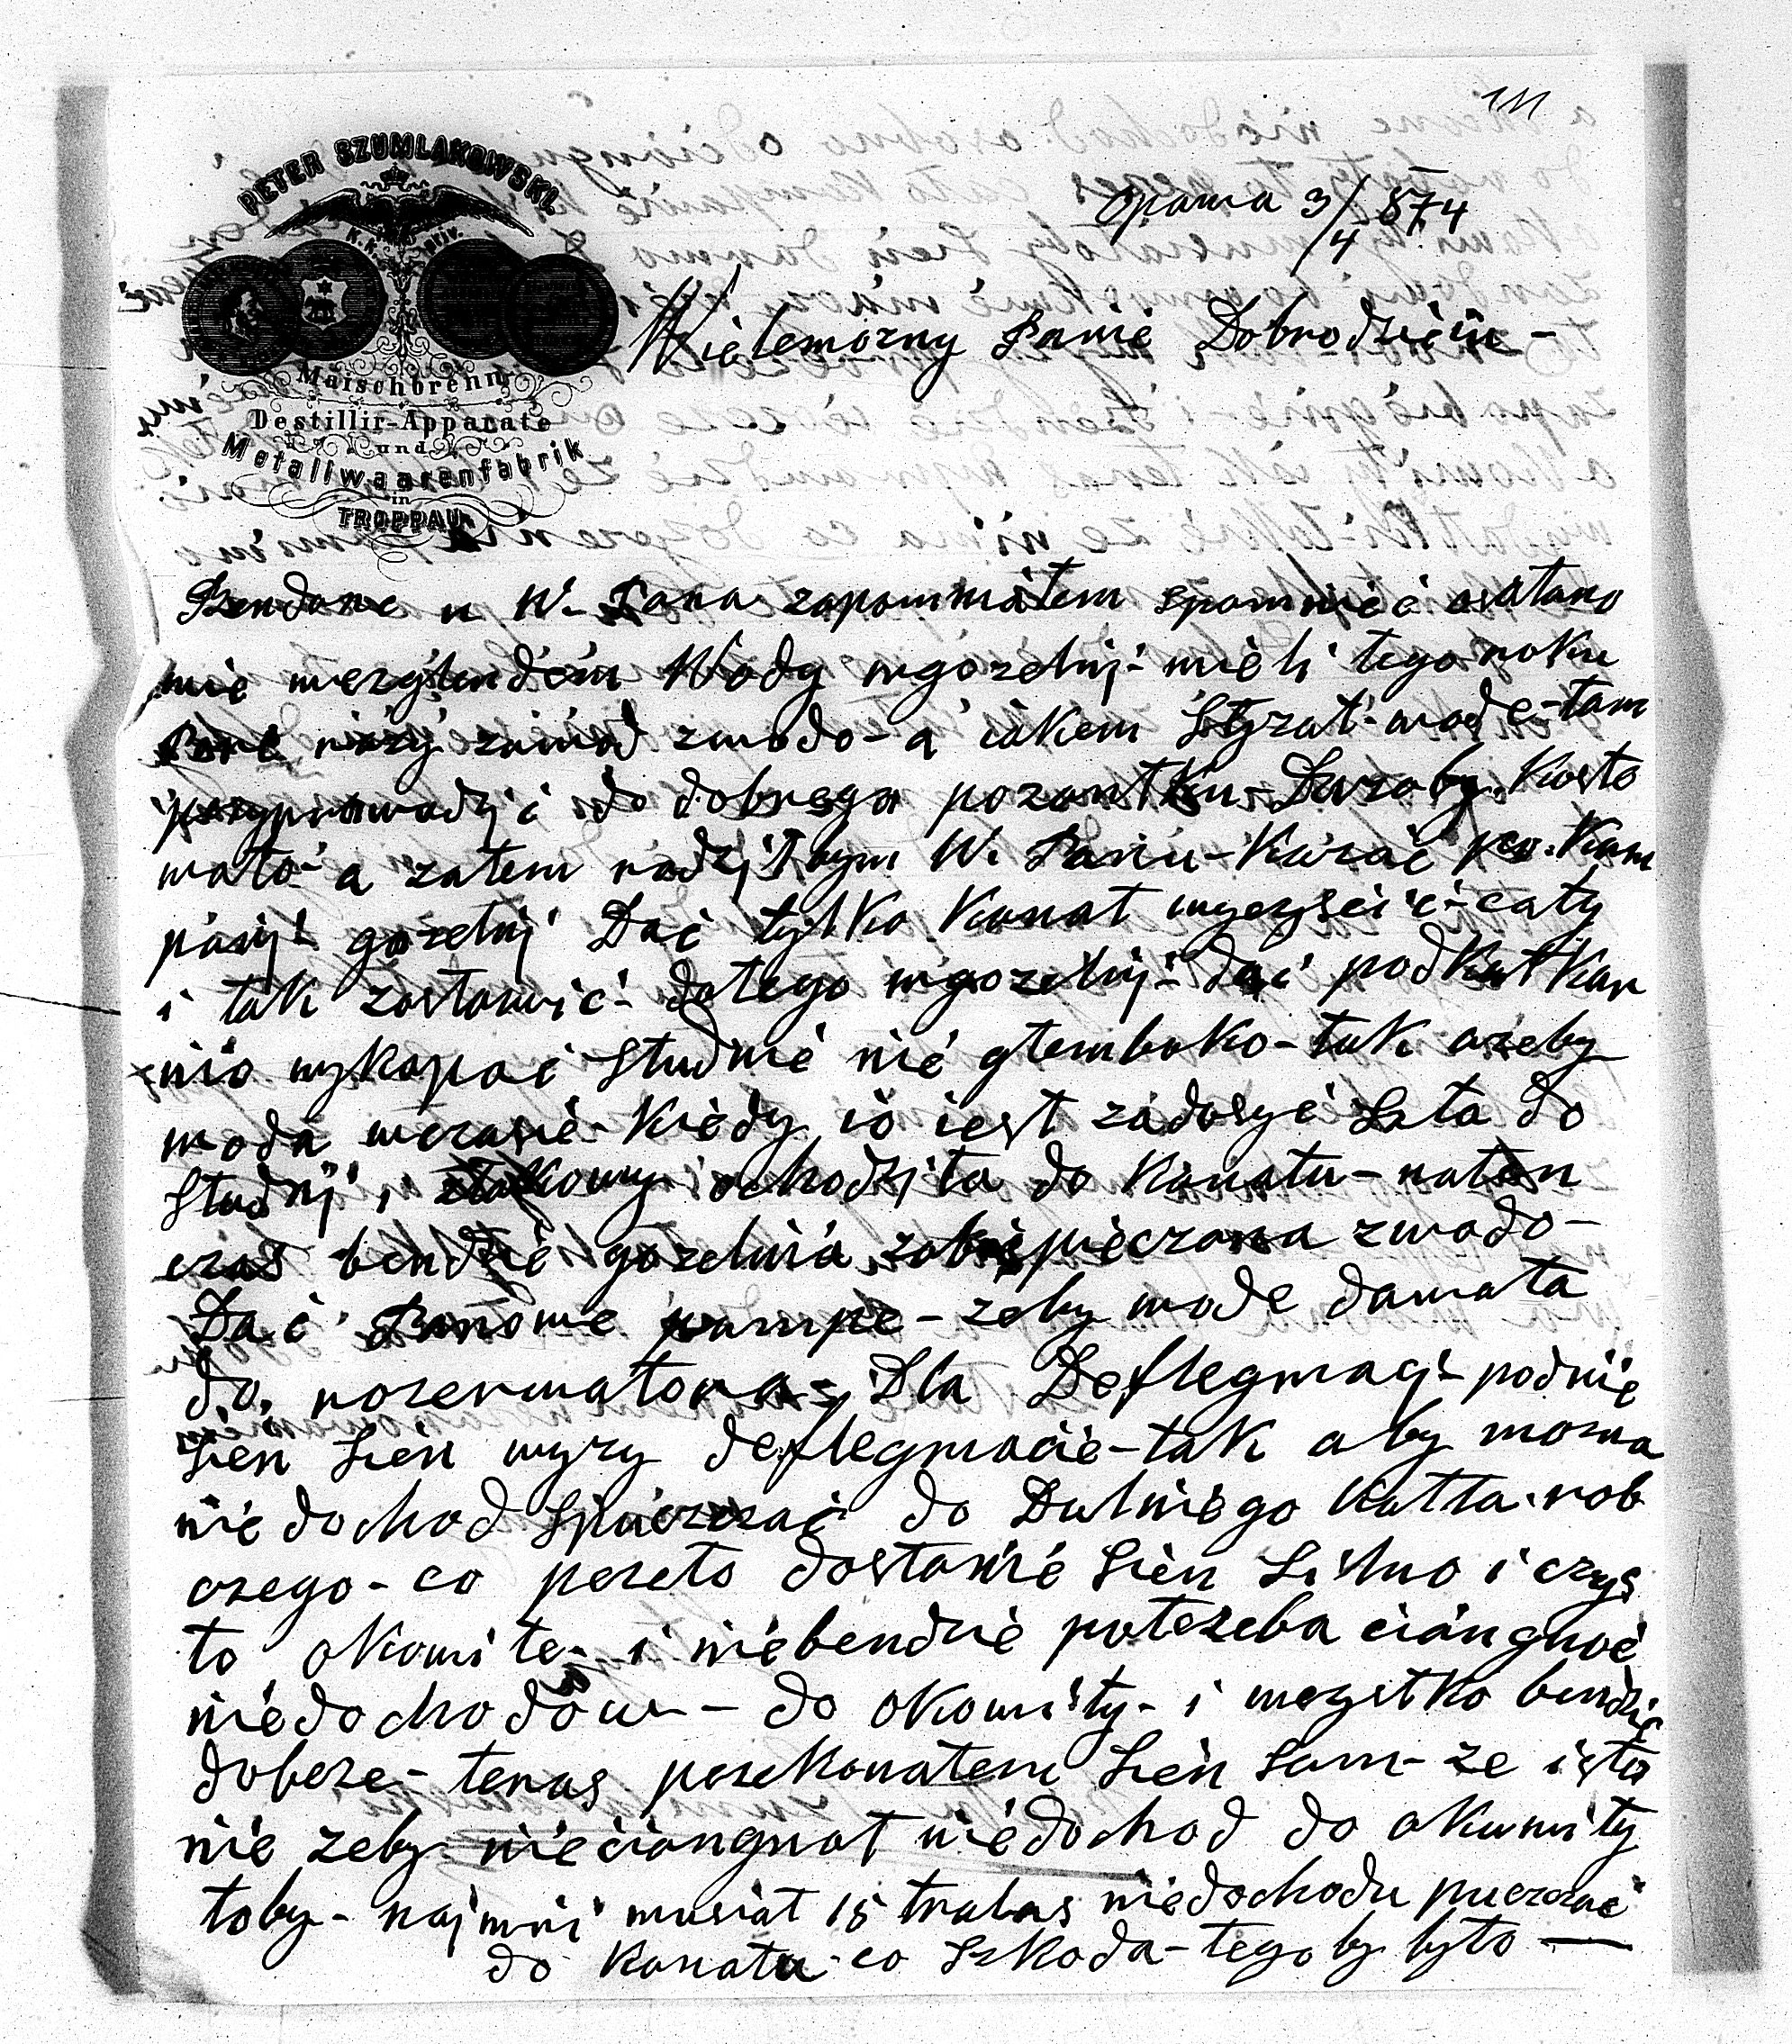 111
PETER SZUMLAKOWSKI
K. K. priv.
Maischbrenn
Destillir-Apparate
und
Metallwaarenfabrik
in
TROPPAU
Opawa 3/4 874
Wielemozny Panie Dobrodzieiu-
Bendonc u W. Pana zapomniałem spomnieć
mie wezglendem Wody wgozelnj- mieli tego roku
Pare razy zawod zwodo- a iakem Słyzał- wode- tam
przyprowadzić do dobrego pozontku- Duzoby Kosto
wało- a zatem radziłbym W. Paniu- Kazać po Kam
panji gozelnj Dać tylko Kanał wyczyścić- cały
i tak zostawić- dotego wgozelnj- dać podkutkar
nio wykopać Studnie nie glemboko- tak azeby
woda wczasie- Kiedy io iest zadosyć Szła do
Studnj, ochodziła do Kanału- naten
czas bendzie gozelnia zabespieczona zwodo-
Dać Parowe pumpe- zeby wode dawała
do rezerwatora- Dla Deflegmacj- podnie
sien Sien wyzy deflegmacie- tak aby mozna
niedochod Spuszczać do Dulniego Kotła rob
ozego- co przeto dostanie Sien Silno i czys
to okowite- i niebendzie potrzeba ciongnoć
niedochodow- do okowity- i wszystko bendzie
dobrze- teras przekonałem Sien Sam- ze isto
nie zeby nieciongnoł niedochod do okowity
toby- najmni musiał 15 trałas niedochodu puszczać
do Kanału- co Szkoda- tego by było-